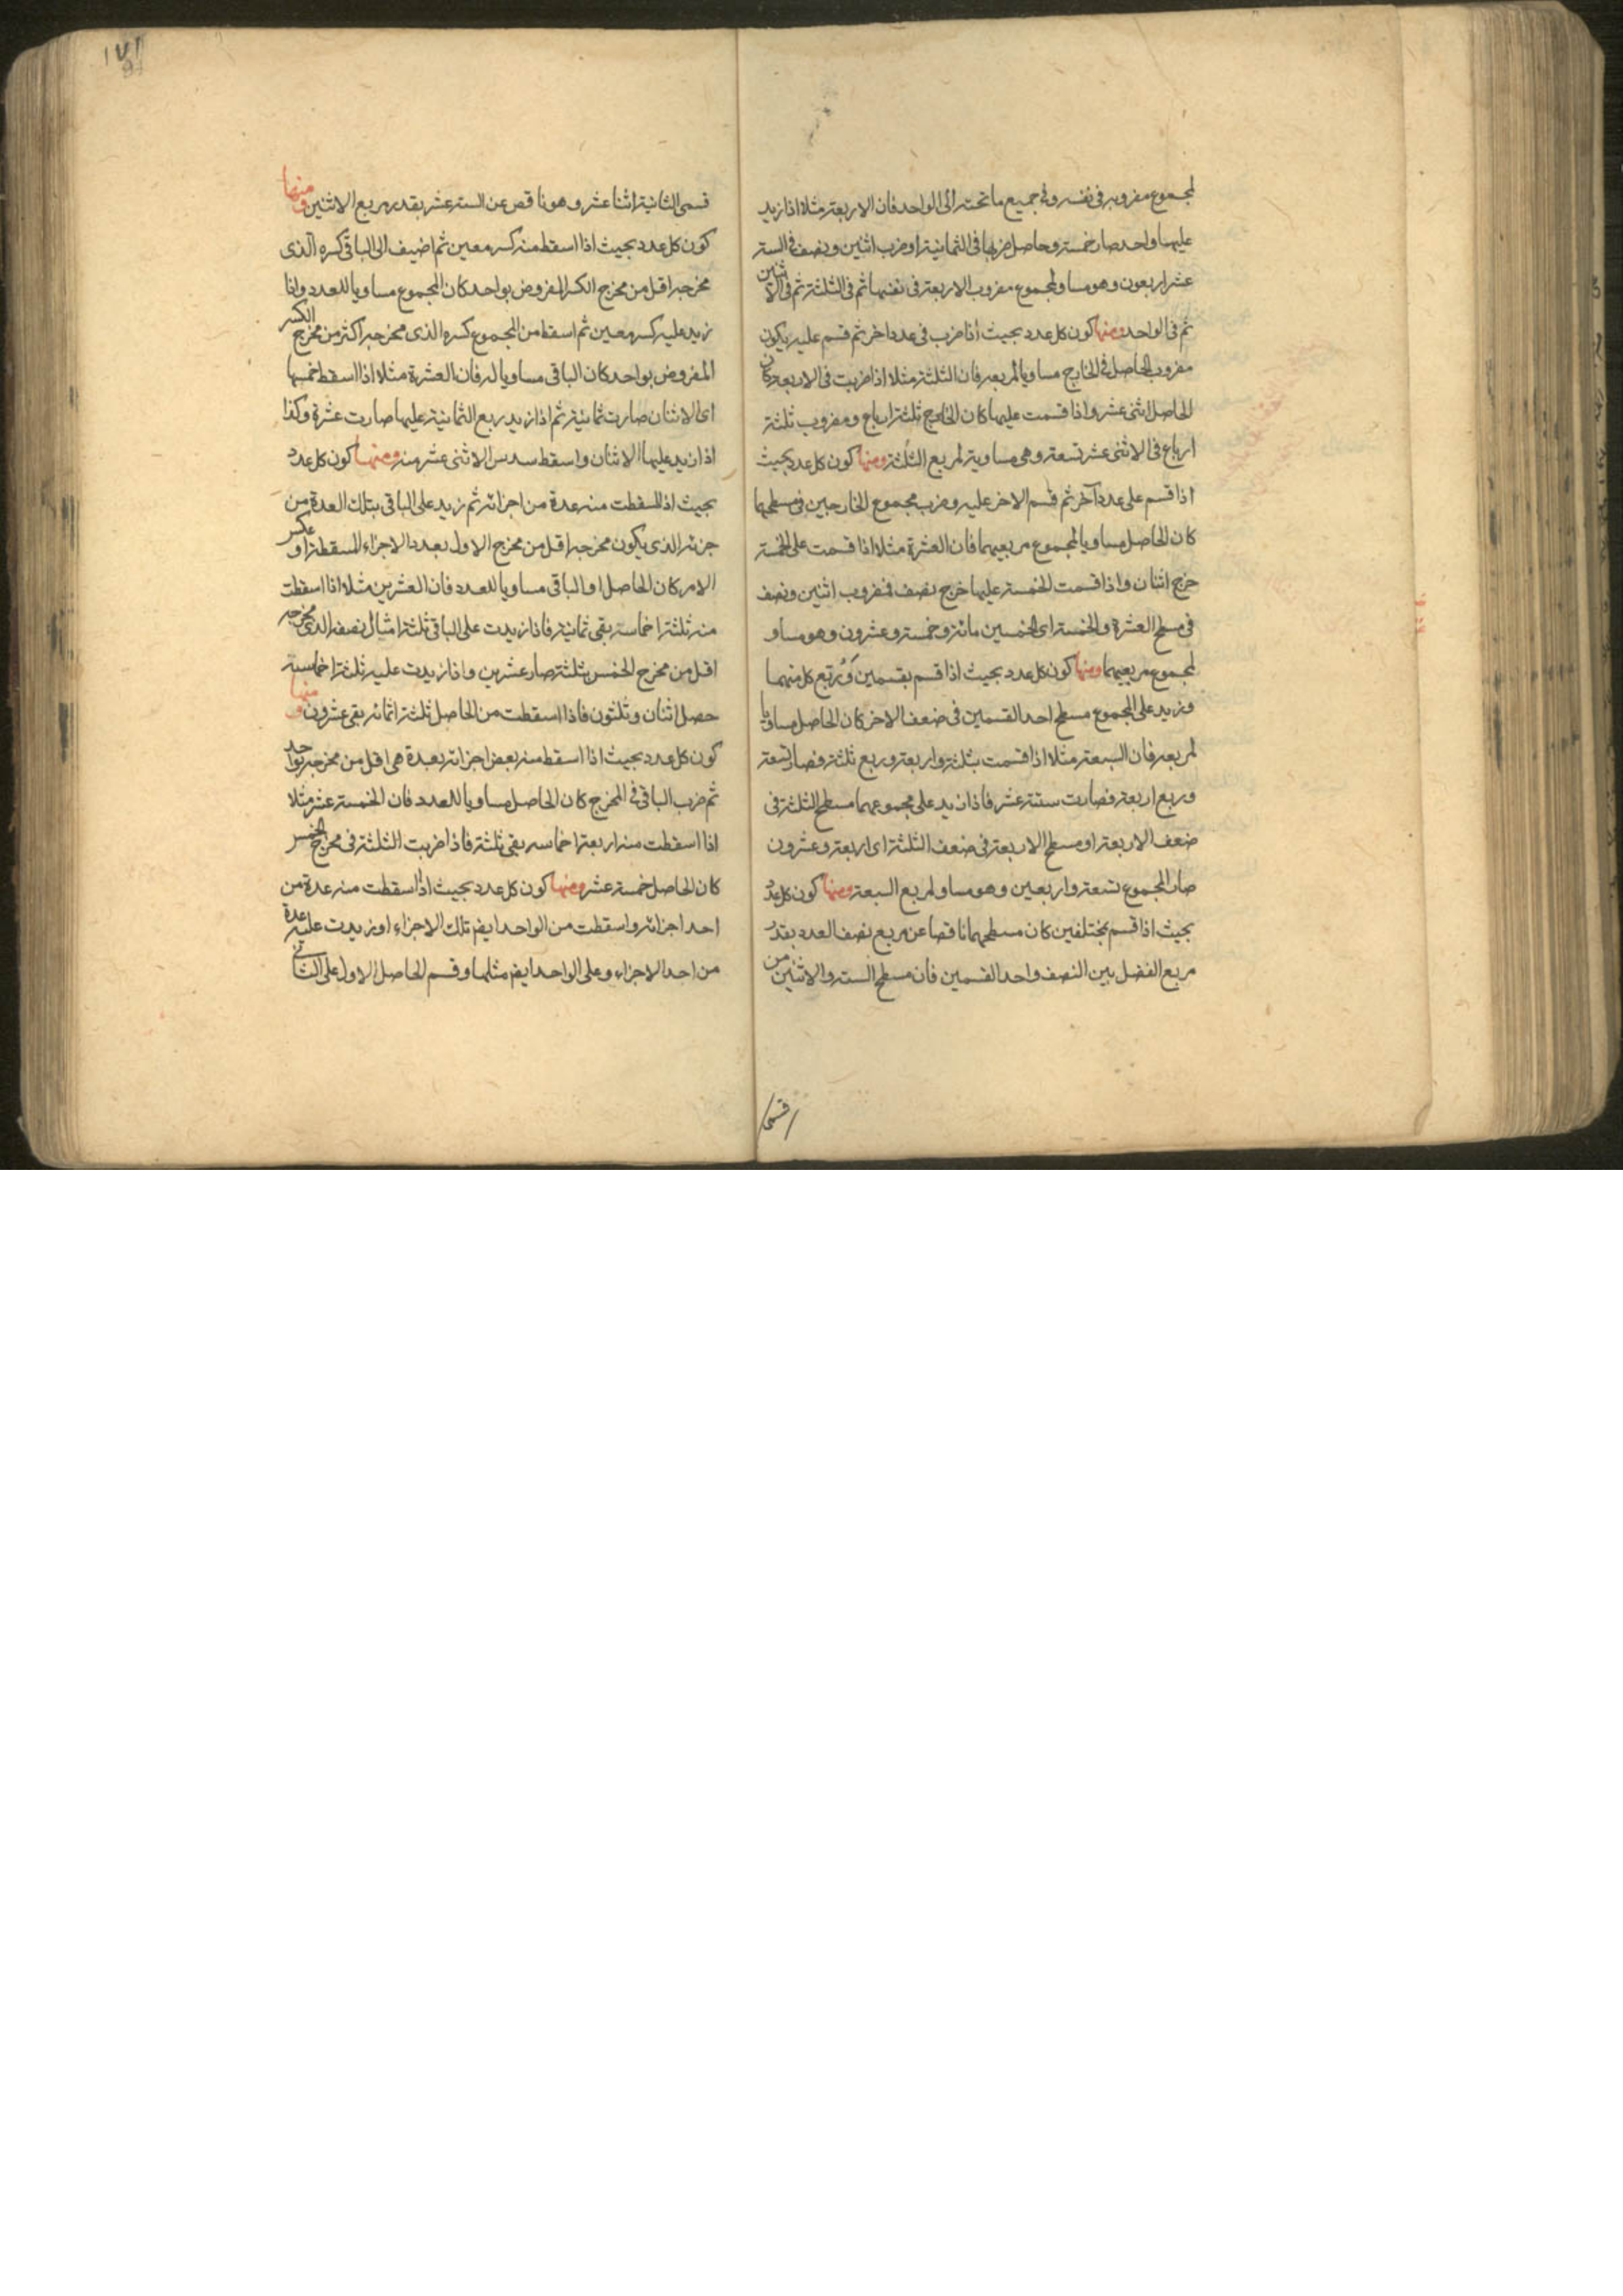 لمجموع مضروبه في نفسه وفي جميع ما تحته الى الواحد فان الاربعة مثلا اذا زيد
عليها واحد صار خمسة وحاصل ضربها في الثمانية او ضرب اثنين ونصف في الستة
عشر اربعون وهو مساو لمجموع مضروب الاربعة في نفسها ثم في الثلثة ثم في الاثنين
ثم في الواحد ومنها كون كل عدد بحيث اذا ضرب في عدد اخر ثم قسم عليه يكون
مضروب الحاصل في الخارج مساويا لمربعه فان الثلثة مثلا اذا ضربت في الاربعة كان
الحاصل اثنى عشر واذا قسمت عليها كان الخارج ثلثة ارباع ومضروب ثلثة
ارباع في الاثنى عشر تسعة وهي مساوية لمربع الثلثة ومنها كون كل عدد بحيث
اذا قسم على عدد آخر ثم قسم الاخر عليه وضرب مجموع الخارجين في مسطحهما
كان الحاصل مساويا لمجموع مربعيهما فان العشرة مثلا اذا قسمت على الخمسة
خرج اثنان واذا قسمت الخمسة عليها خرج نصف فمضروب اثنين ونصف
في مسطح العشرة والخمسة اى الخمسين مائة وخمسة وعشرون وهو مساو
لمجموع مربعيهما ومنها كون كل عدد بحيث اذا قسم بقسمين وربع كل منهما
وزيد على المجموع مسطح احد القسمين في ضعف الاخر كان الحاصل مساويا
لمربعه فان السبعة مثلا اذا قسمت بثلثة واربعة وربع ثلثة فصار تسعة
وربع اربعة فصارت ستة عشر فاذا زيد على مجموعهما مسطح الثلثة في
ضعف الاربعة او مسطح الاربعة في ضعف الثلثة اى اربعة وعشرون
صار المجموع تسعة واربعين وهو مساو لمربع السبعة ومنها كون كل عدد
بحيث اذا قسم بمختلفين كان مسطحهما ناقصا عن مربع نصف العدد بقدر
مربع الفضل بين النصف واحد القسمين فان مسطح الستة والاثنين من
قسمى
١٧١
قسمى الثمانية اثنا عشر وهو ناقص عن الستة عشر بقدر مربع الاثنين ومنها
كون كل عدد بحيث اذا اسقط منه كسر معين ثم اضيف الى الباقى كسره الذى
مخرجه اقل من مخرج الكسر المفروض بواحد كان المجموع مساويا للعدد واذا
زيد عليه كسر معين ثم اسقط من المجموع كسره الذى مخرجه اكثر من مخرج الكسر
المفروض بواحد كان الباقى مساويا له فان العشرة مثلا اذا اسقط خمسها
اى الاثنان صارت ثمانية ثم اذا زيد ربع الثمانية عليها صارت عشرة وكذا
اذا زيد عليها الاثنان واسقط سدس الاثنى عشر منه ومنها كون كل عدد
بحيث اذا اسقطت منه عدة من اجزائه ثم زيد على الباقى بتلك العدة من
جزئه الذى يكون مخرجه اقل من مخرج الاول بعدد الاجزاء المسقطة او عكس
الامر كان الحاصل او الباقى مساويا للعدد فان العشرين مثلا اذا اسقطت
منه ثلثة اخماسه بقى ثمانية فاذا زيدت على الباقى ثلثة امثال نصفه الذى مخرجه
اقل من مخرج الخمس بثلثة صار عشرين واذا زيدت عليه ثلثة اخماسه
حصل اثنان وثلثون فاذا اسقطت من الحاصل ثلثة اثمانه بقى عشرون ومنها
كون كل عدد بحيث اذا اسقط منه بعض اجزائه بعدة هى اقل من مخرجه بواحد
ثم ضرب الباقى في المخرج كان الحاصل مساويا للعدد فان الخمسة عشر مثلا
اذا اسقطت منه اربعة اخماسه بقى ثلثة فاذا ضربت الثلثة في مخرج الخمس
كان الحاصل خمسة عشر ومنها كون كل عدد بحيث اذا اسقطت منه عدة من
احد اجزائه واسقطت من الواحد ايضا تلك الاجزاء او زيدت عليه عدة
من احد الاجزاء وعلى الواحد ايضا مثلها وقسم الحاصل الاول على الثانى